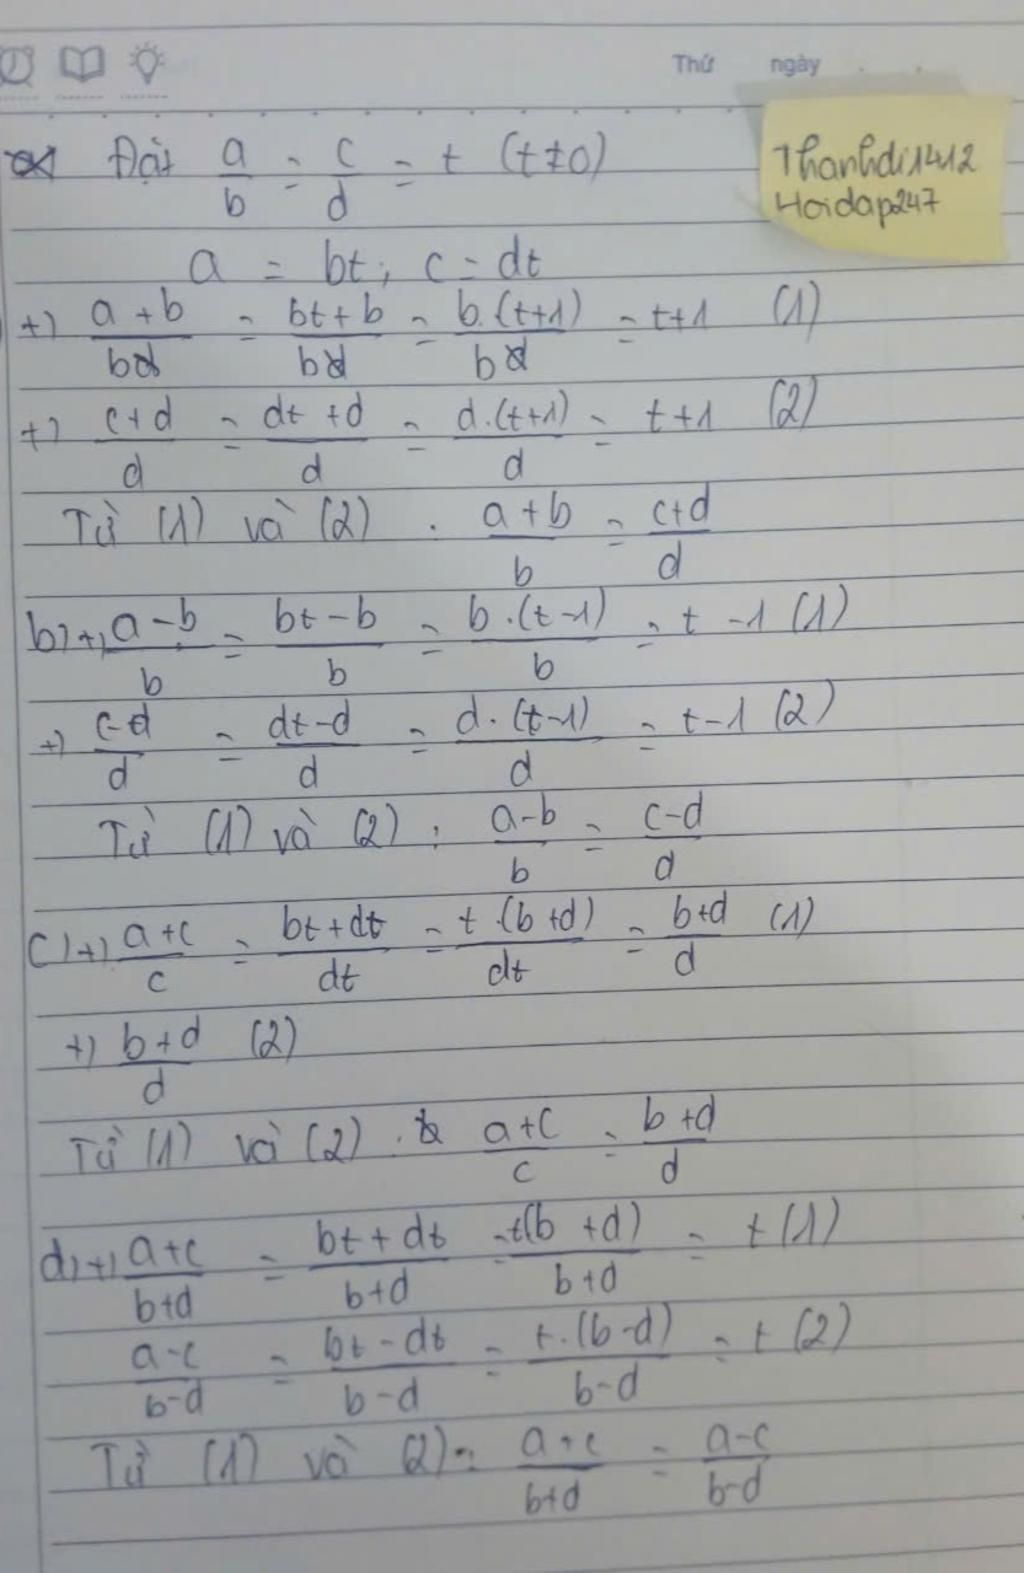 Thứ ngày
Đặt a/b = c/d = t (t≠0)
Thanhdi1412
Hoidap247
a = bt; c = dt
+) a+b/b = bt+b/b = b.(t+1)/b = t+1 (1)
+) c+d/d = dt+d/d = d.(t+1)/d = t+1 (2)
Từ (1) và (2) : a+b/b = c+d/d
b) +) a-b/b = bt-b/b = b.(t-1)/b = t-1 (1)
+) c-d/d = dt-d/d = d.(t-1)/d = t-1 (2)
Từ (1) và (2) : a-b/b = c-d/d
c) +) a+c/c = bt+dt/dt = t.(b+d)/dt = b+d/d (1)
+) b+d/d (2)
Từ (1) và (2) : a+c/c = b+d/d
d) +) a+c/b+d = bt+dt/b+d = t(b+d)/b+d = t (1)
a-c/b-d = bt-dt/b-d = t.(b-d)/b-d = t (2)
Từ (1) và (2) : a+c/b+d = a-c/b-d